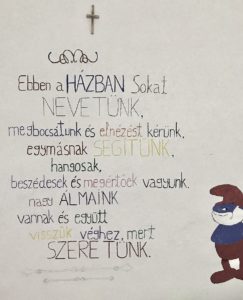 Ebben a HÁZBAN Sokat
NEVETÜNK,
megbocsátunk és elnézést kérünk,
egymásnak SEGÍTÜNK,
hangosak,
beszédesek és megértőek vagyunk.
nagy ÁLMAINK
vannak és együtt
visszük véghez, mert
SZERETÜNK.